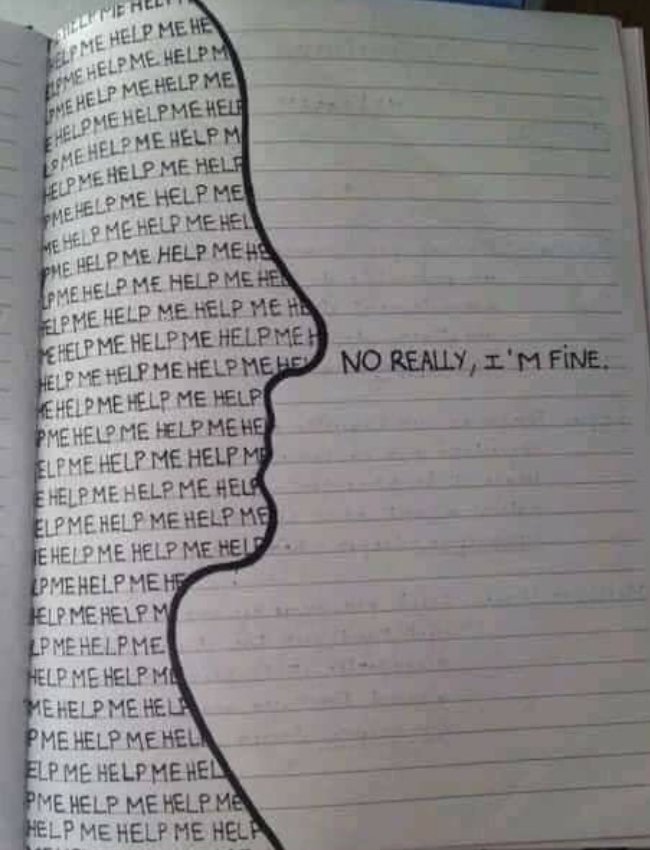 HELP ME HELP
HELP ME HELP ME HE
LPME HELPME HELP M
PME HELP ME HELP ME
E HELPME HELPME HELP
LPMEHELPME HELP M
HELPME HELP ME HELP
PMEHELP ME HELP ME
ME HELP ME HELPME HEL
PME HELP ME HELP ME HE
LPME HELP ME HELP ME HEL
ELPME HELP ME HELP ME HE
MEHELP ME HELP ME HELPME H
HELP ME HELPME HELPME HEL
NO REALLY, I'M FINE.
MEHELP ME HELP ME HELP
PME HELP ME HELPME HE
ELPME HELP ME HELP ME
E HELPME HELP ME HELP
ELPME HELP ME HELP ME
E HELPME HELP ME HELP
LPMEHELP ME HE
HELP ME HELP M
LP ME HELPME
HELP ME HELP ME
ME HELP ME HELP
PME HELP ME HEL
ELP ME HELP ME HEL
PME HELP ME HELP ME
HELP ME HELP ME HELP